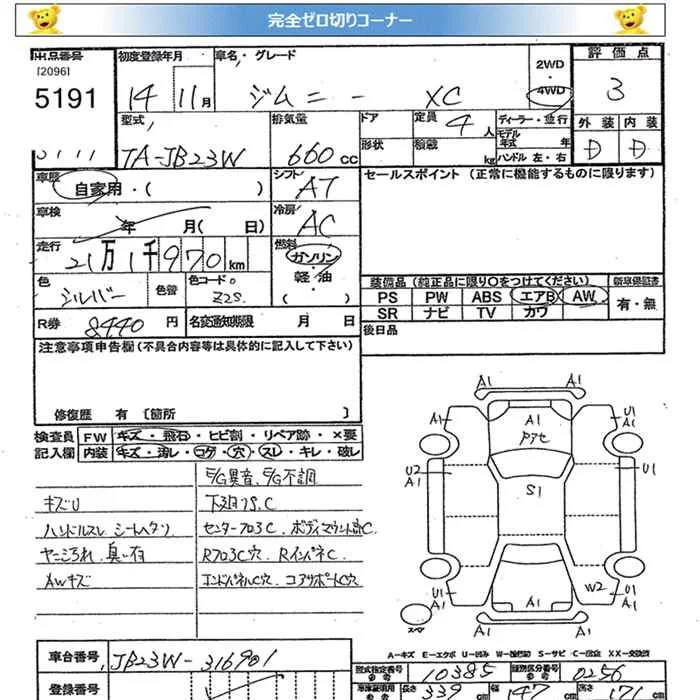 完全ゼロ切りコーナー
出品番号 初度登録年月 車名・グレード 2WD ・ 4WD 評価点
[2096]
5191 14 11月 ジムニー XC 3
型式 排気量 ドア 定員 4人 ディーラー・並行 外装 内装
TA-JB23W 660cc 形状 積載 kg モデル年式 年 ハンドル 左・右 D D
車歴 自家用・( ) シフト AT セールスポイント (正常に機能するものに限ります)
車検 年 月( 日) 冷房 AC
走行 21万1千970km 燃料 ガソリン・軽油・( )
色 シルバー 色替 色コードNo Z2S 装備品 (純正品に限り○をつけてください) 新車保証書
PS PW ABS エアB AW 有・無
SR ナビ TV カワ
R券 8440円 名変通知期限 月 日 後日品
注意事項申告欄(不具合内容等は具体的に記入して下さい)
修復歴 有 〔箇所 〕
検査員 FW キズ・飛石・ヒビ割・リペア跡・×要
記入欄 内装 キズ・汚レ・コゲ・穴・スレ・キレ・破レ
E/G異音、E/G不調
キズU 下廻りS.C
ハンドルスレ シートヘタリ センターフロアC、ボディマウント部C
ヤニ汚れ、臭い有 RフロアC穴 RインパネC
AWキズ エンドパネルC穴 コアサポートC穴
A1 A1
A1 A1 U1 A1
アセ
U2 A1 S1 U1
U1 A1 A1 W2 U1 A1
スペア A1 A1
A-キズ E-エクボ U-凹み W-補修跡 S-サビ C-腐食 XX-交換済
車台番号 JB23W-316901 型式指定番号 10385 類別区分番号 0256
登録番号 長さ 339cm 幅 147cm 高さ 171cm